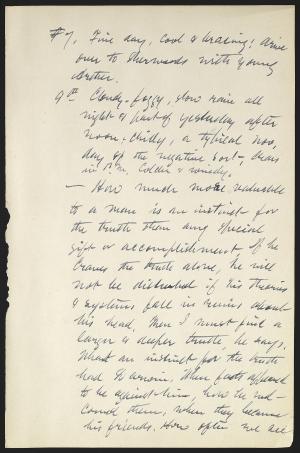 7. Fine day, cool & bracing; drive
over to Sherwoods with young
brother.
9th Cloudy, foggy, slow rain all
night & part of yesterday after
noon; chilly, a typical Nov.
day of the negative sort; clears
in P.M. Colder & windy.
— How much more valuable
to a man is an instinct for
the truth than any special
gift or accomplishment. If he
craves the truth alone, he will
not be disturbed if his theories
& systems fall in ruins about
his head, then I must find a
larger & deeper truth, he says.
What an instinct for the truth
had Darwin. When facts appeared
to be against him, how he
them, when they became
his friends. How often we are